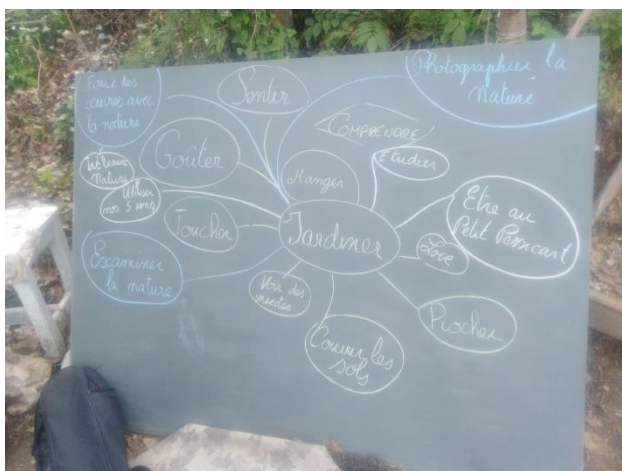 Faire des
œuvres avec
la nature
Sentir
Photographier la
nature
COMPRENDRE
Etudier
Goûter
Tableaux
nature
Utiliser
nos 5 sens
Manger
Toucher
Jardiner
Etre au
Petit Pessicart
Examiner
la nature
Voir des
Piocher
Couvrir les
sols